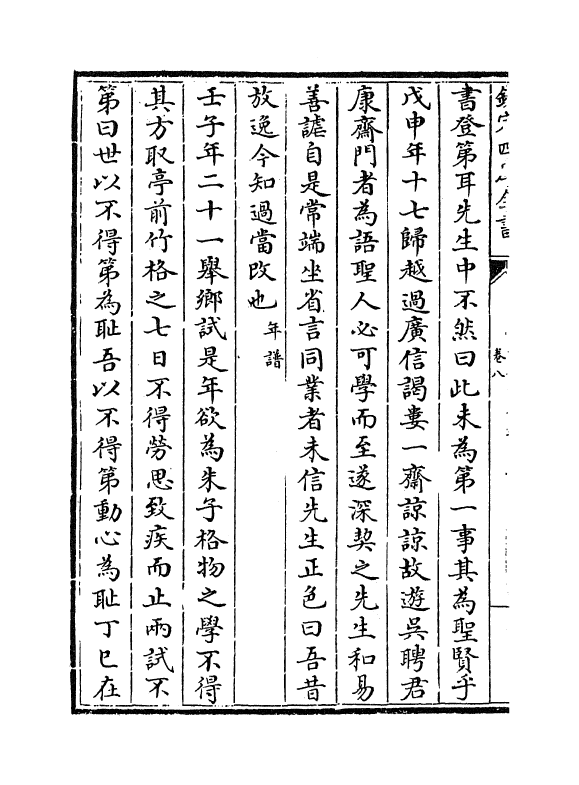 欽定四庫全書
卷八
書登第耳先生中不然曰此未為第一事其為聖賢乎
戊申年十七歸越過廣信謁婁一齋諒諒故遊吳聘君
康齋門者為語聖人必可學而至遂深契之先生和易
善謔自是常端坐省言同業者未信先生正色曰吾昔
放逸今知過當改也年譜
壬子年二十一舉鄉試是年欲為朱子格物之學不得
其方取亭前竹格之七日不得勞思致疾而止兩試不
第曰世以不得第為恥吾以不得第動心為恥丁巳在